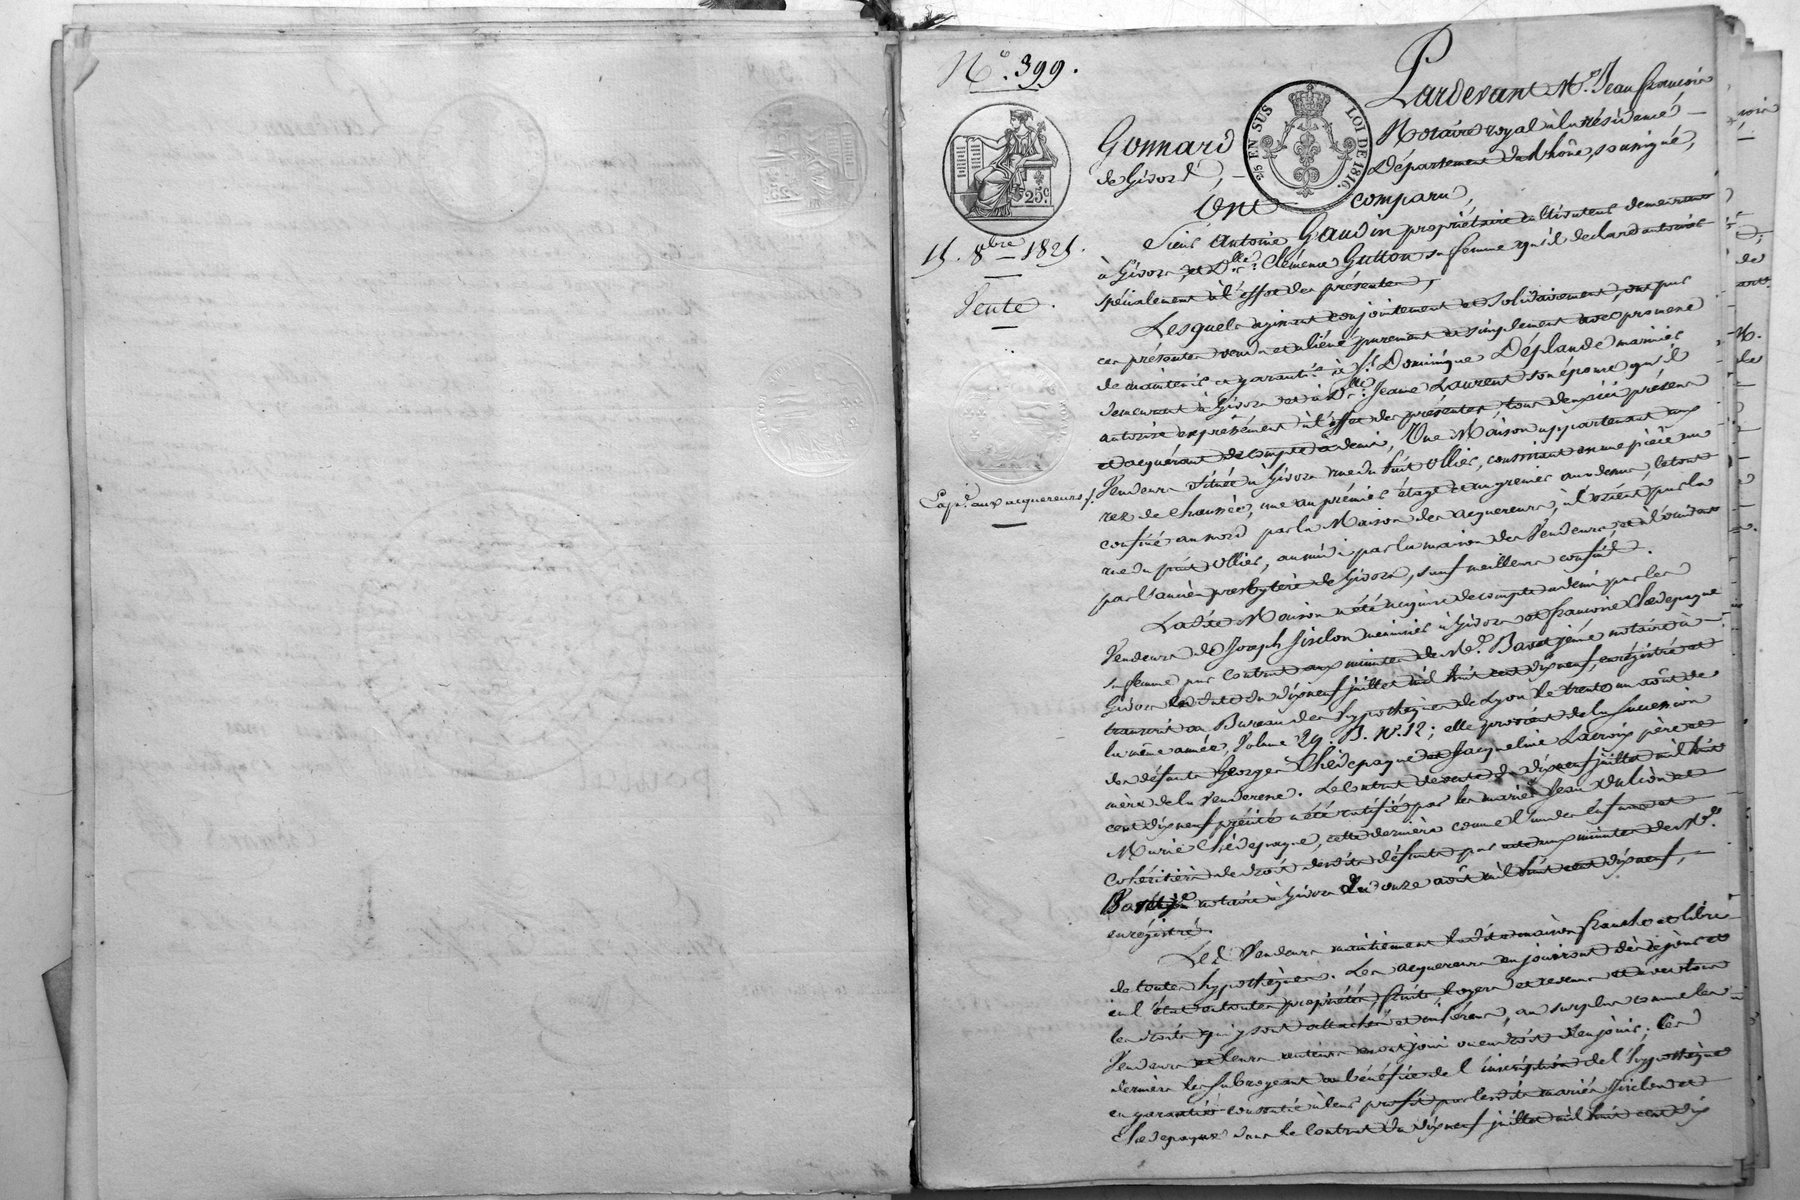 N.º 399.
25.c
15. 8bre 1825.
Vente.
Exp.on aux acquereurs
2/5 EN SUS
LOI DE 1816.
Pardevant M.e Jean françois
Gonnard Notaire royal à la résidence
de Givors, Département du Rhône, soussigné,
Ont comparu,
Sieur Antoine Gaudin propriétaire cultivateur demeurant
à Givors, et D.lle Clémence Gutton sa femme qu'il declare autoriser
spécialement à l'effet des présentes,
Lesquels agissant conjointement et solidairement, ont par
ces présentes vendu et aliéné purement et simplement avec promesse
de maintenir et garantir à S.r Dominique Déplaude marinier
demeurant à Givors et à D.lle Jeanne Laurent son épouse qu'il
autorise expressément à l'effet des présentes, tous deux ici présens
et acquérant de compte à demi, Une Maison appartenant aux
Vendeurs située à Givors rue du puit Ollier, consistant en une pièce au
rez de chaussée, une au premier étage et un grenier au dessus, le tout
confiné au nord par la Maison des acquereurs, à l'orient par la
rue du puit Ollier, au midi par la maison des Vendeurs et à l'occident
par l'ancien presbytère de Givors, sauf meilleurs confins.
Ladite Maison a été acquise de compte à demi par les
Vendeurs de Joseph menuisier à Givors et françoise Chedepagne
sa femme par contrat aux minutes de M.e notaire à
Givors en date du dixneuf juillet mil huit cent dixneuf, enrégistré et
transcrit au Bureau des hypothèques de Lyon le trente un août de
la même année, Volume 29. B. N.º 12; elle provient de la succession
des défunts Georges Chedepagne et Jacqueline Lacroix père et
mère de la Venderesse. Le Contrat de vente du dixneuf juillet mil huit
cent dixneuf précité a été ratifié par les mariés Jean et
Marie Chedepagne, cette dernière comme l'un des enfans et
cohéritière de droit desdits défunts par acte aux minutes de M.e
notaire à Givors du onze août mil huit cent dixneuf,
enrégistré.
Les d. Vendeurs maintiennent ladite maison franche et libre
de toutes hypothèques. Les acquereurs en jouiront dès ce jour et
en l'état en toutes propriétés, fruits, loyers et revenus et avec tous
les droits qui y sont attachés et inhérens, au surplus comme les
Vendeurs et leurs auteurs en ont joui ou eu droit d'en jouir. Ces
derniers les subrogeant au bénéfice de l'inscription de l'hypothèque
en garantie consentie à leur profit par lesdits mariés et
Chedepagne dans le Contrat du dixneuf juillet mil huit cent dix